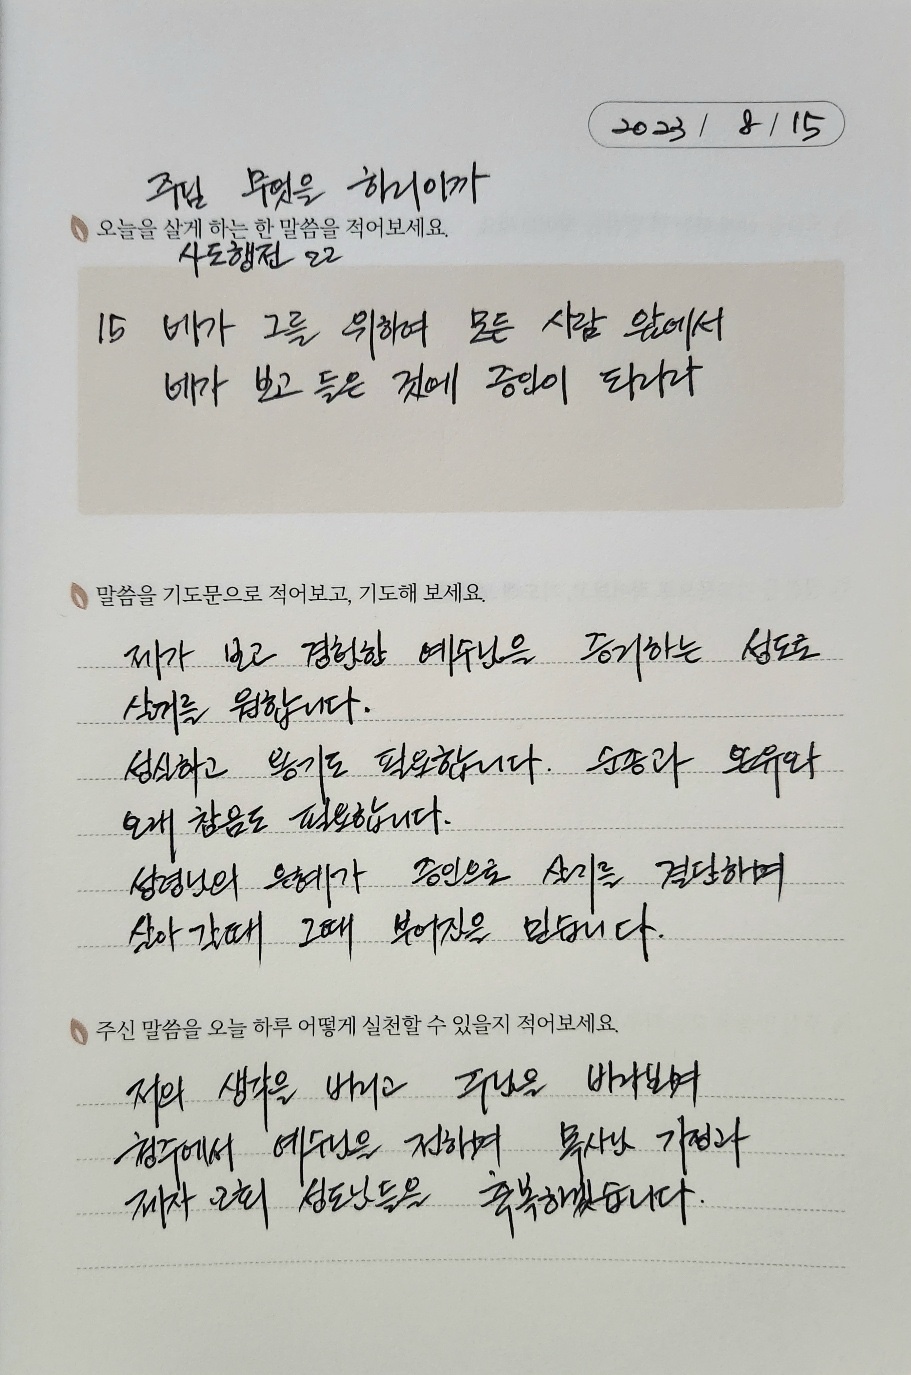 2023 / 8 / 15
주님 무엇을 하리이까
오늘을 살게 하는 한 말씀을 적어보세요.
사도행전 22
15 네가 그를 위하여 모든 사람 앞에서
네가 보고 들은 것에 증인이 되리라
말씀을 기도문으로 적어보고, 기도해 보세요.
제가 보고 경험한 예수님을 증거하는 성도로
살기를 원합니다.
성실하고 용기도 필요합니다. 순종과 온유와
오래 참음도 필요합니다.
성령님의 은혜가 증인으로 살기를 결단하며
살아 갈때 그때 부어짐을 믿습니다.
주신 말씀을 오늘 하루 어떻게 실천할 수 있을지 적어보세요.
저의 생각을 버리고 주님을 바라보며
청주에서 예수님을 전하며 목사님 가정과
제자 교회 성도님들을 축복하겠습니다.